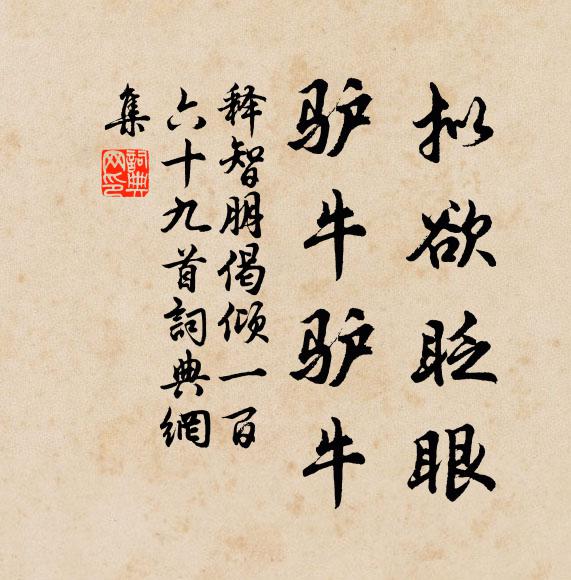 拟欲眨眼
驴牛驴牛
释智朋偈倾一百
六十九首詞典網
集
詞典
网印